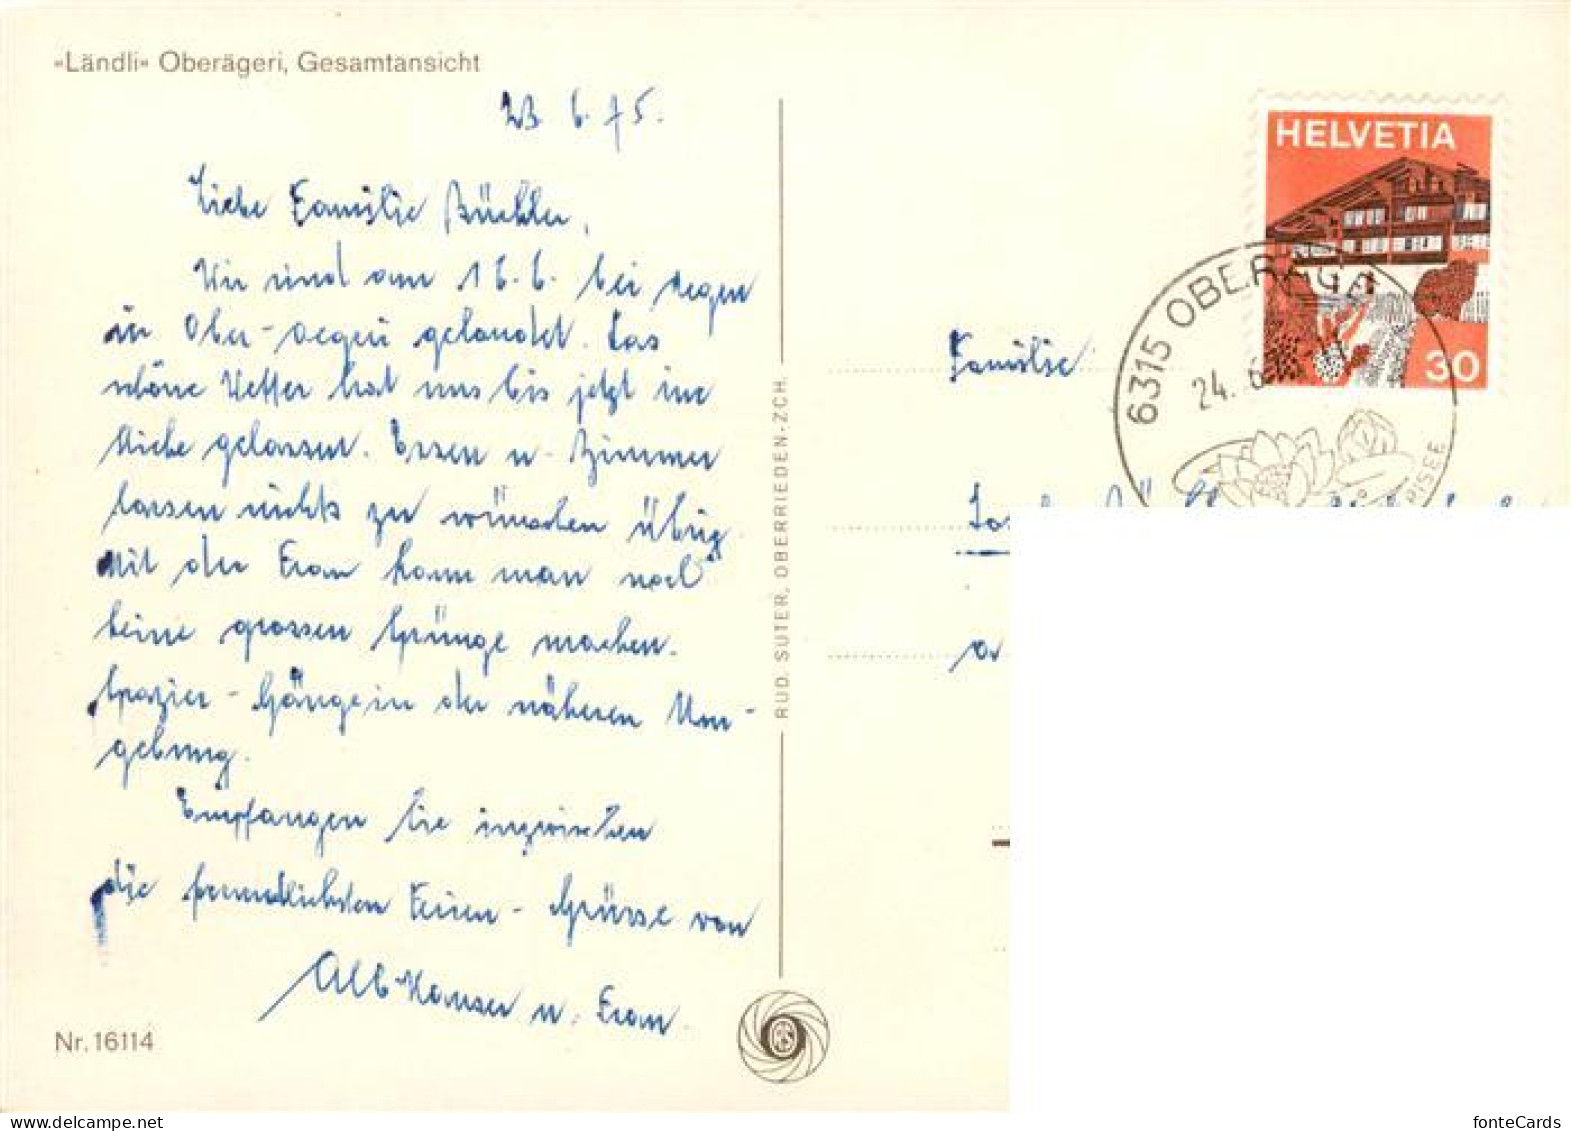 «Ländli» Oberägeri, Gesamtansicht
23. 6. 75.
Liebe Familie Büchler,
Wir sind am 16. 6. bei Regen
in Ober-Aegeri gelandet. Das
schöne Wetter hat uns bis jetzt im
Stiche gelassen. Essen u. Zimmer
lassen nichts zu wünschen übrig.
Mit der Frau kann man noch
keine grossen Sprünge machen.
Spazier-Gänge in der näheren Um-
gebung.
Empfangen Sie inzwischen
die freundlichsten Ferien-Grüsse von
Alb. Hauser u. Frau.
Nr. 16114
RUD. SUTER, OBERRIEDEN-ZCH.
HELVETIA
30
6315 OBERÄGERI
24. 6
Familie
fonteCards
www.delcampe.net